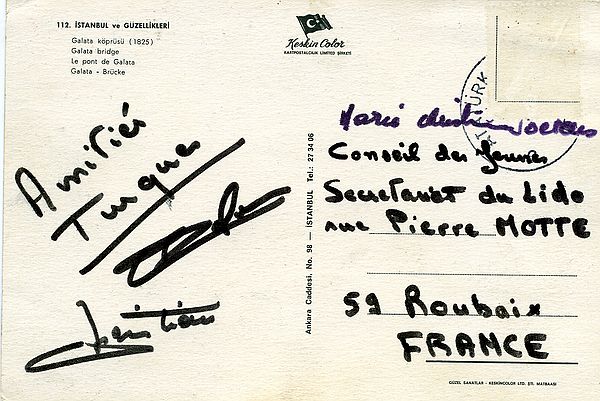 112. İSTANBUL ve GÜZELLİKLERİ
Galata köprüsü (1825)
Galata bridge
Le pont de Galata
Galata - Brücke
Keskin Color
KARTPOSTALCILIK LIMITED ŞİRKETİ
Amitiés
Turques
Christian
Ankara Caddesi, No. 98 — İSTANBUL Tel.: 27 34 06
Marie
Conseil des Jeunes
Secretariat du Lido
rue Pierre MOTTE
59 Roubaix
FRANCE
GÜZEL SANATLAR - KESKİNCOLOR LTD. ŞTİ. MATBAASI